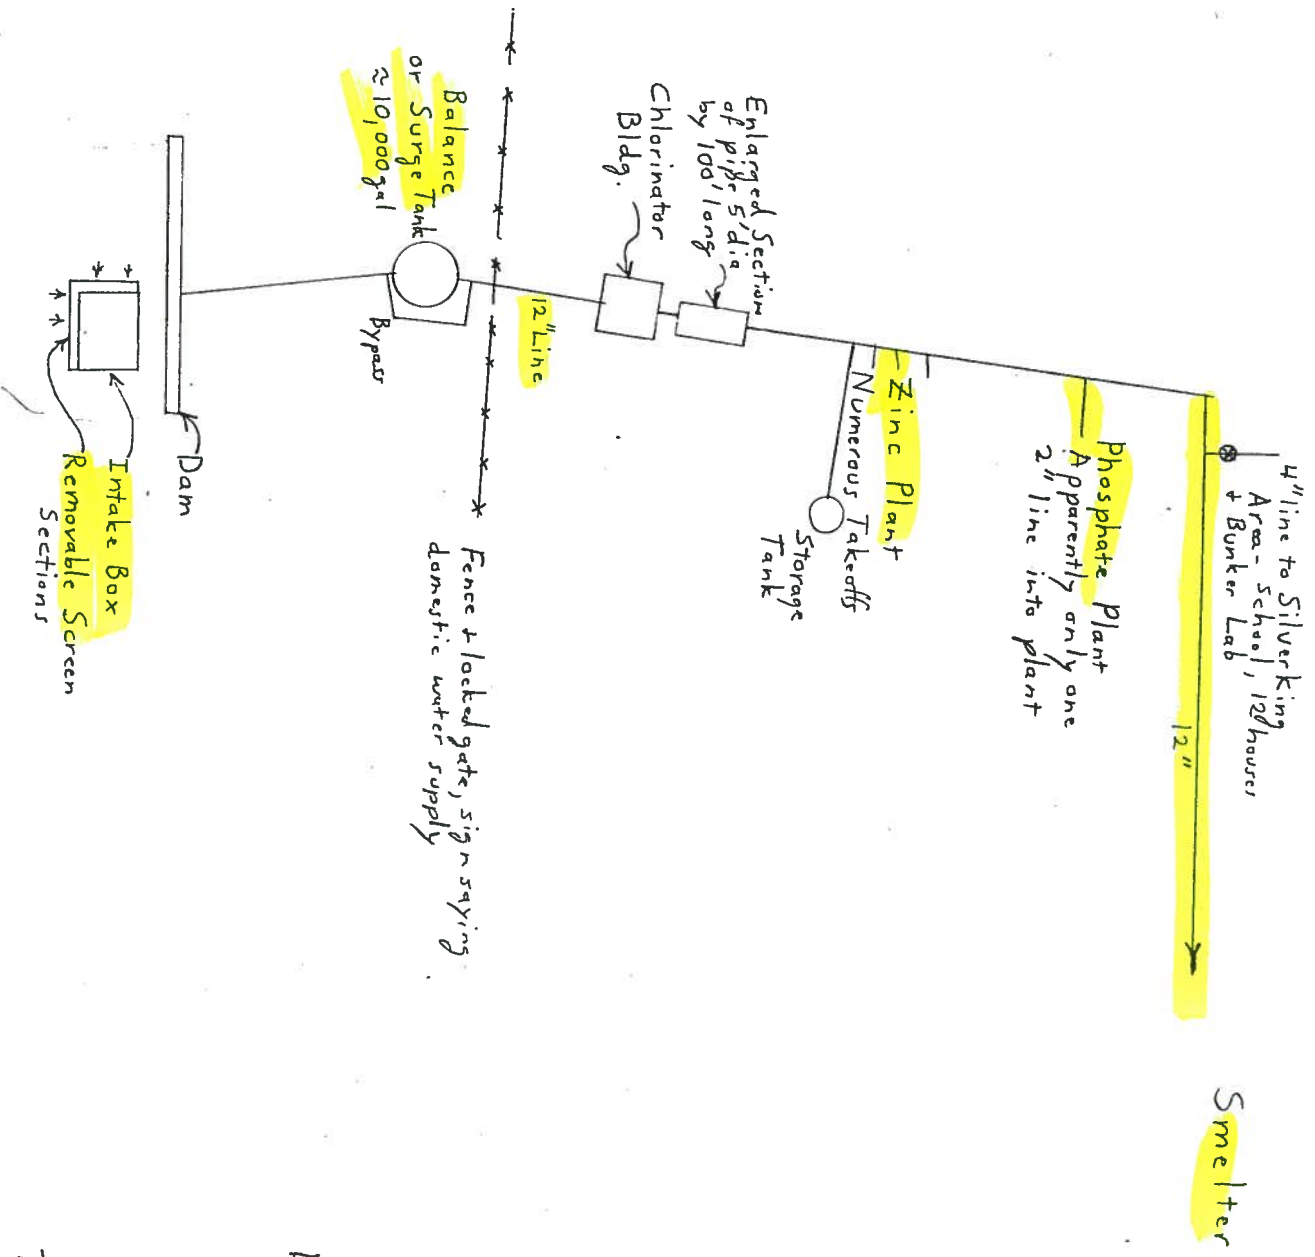 4" line to Silverking
Area - School, 12 houses
+ Bunker Lab
12"
Smelter
Phosphate Plant
Apparently only one
2" line into plant
Zinc Plant
Numerous Takeoffs
Storage
Tank
Enlarged Section
of pipe 5' dia
by 100' long
Chlorinator
Bldg.
12" Line
Fence + locked gate, sign saying
domestic water supply
Balance
or Surge Tank
≈ 10,000 gal
Bypass
Dam
Intake Box
Removable Screen
Sections